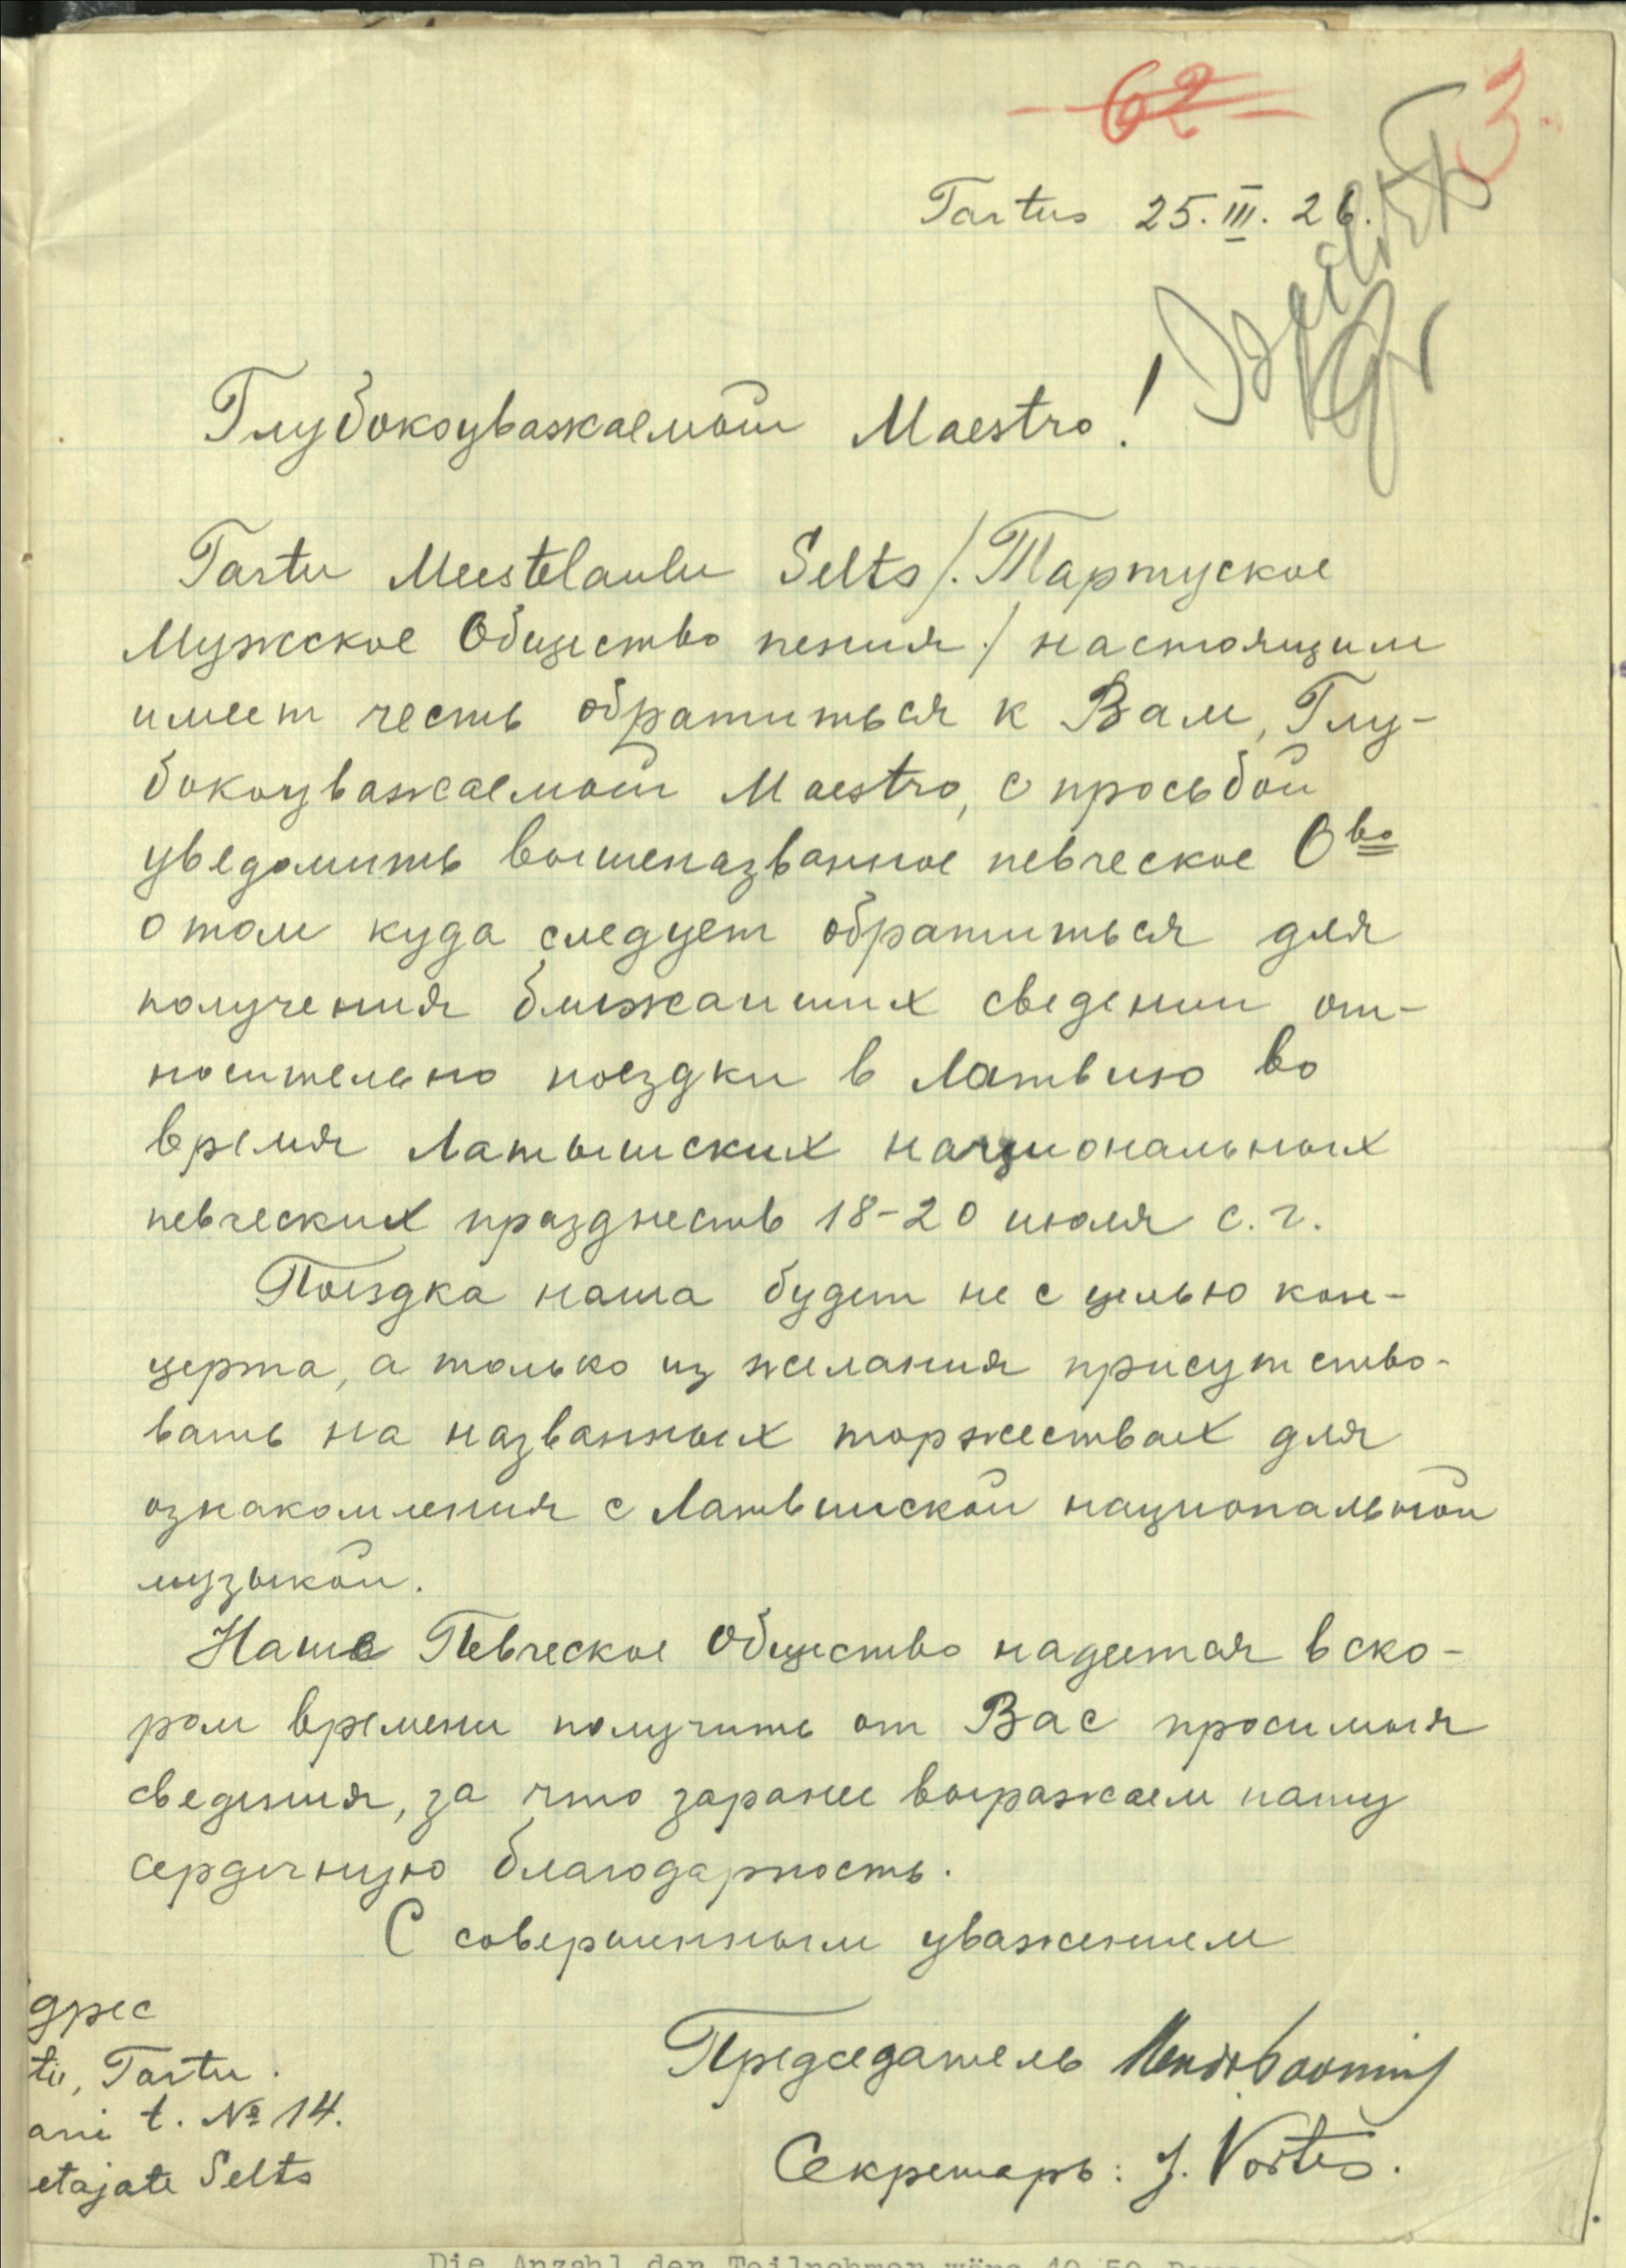 62
3.
Tartus 25. III. 26.
Глубокоуважаемый Maestro!
Tartu Meestelaulu Selts /. Тартуское
Мужское Общество пения ./ настоящим
имеет честь обратиться к Вам, Глу-
бокоуважаемый Maestro, с просьбой
уведомить вышеназванное певческое О во
о том куда следует обратиться для
получения ближаиших сведении от-
носительно поездки в Латвию во
время Латышских национальных
певческих празднеств 18-20 июля с. г.
Поездка наша будет не с целью кон-
церта, а только из желания присутство-
вать на названных торжествах для
ознакомления с Латвииской национальной
музыкой.
Наше Певческое Общество надеется в ско-
ром времени получить от Вас просимыя
сведения, за что заранее выражаем нашу
сердечную благодарность.
С совершенным уважением
дрес
ti, Tartu.
ani t. № 14.
etajate Selts
Председатель
Секретарь: J.
Die Anzahl der Teilnehmer wäre 40-50